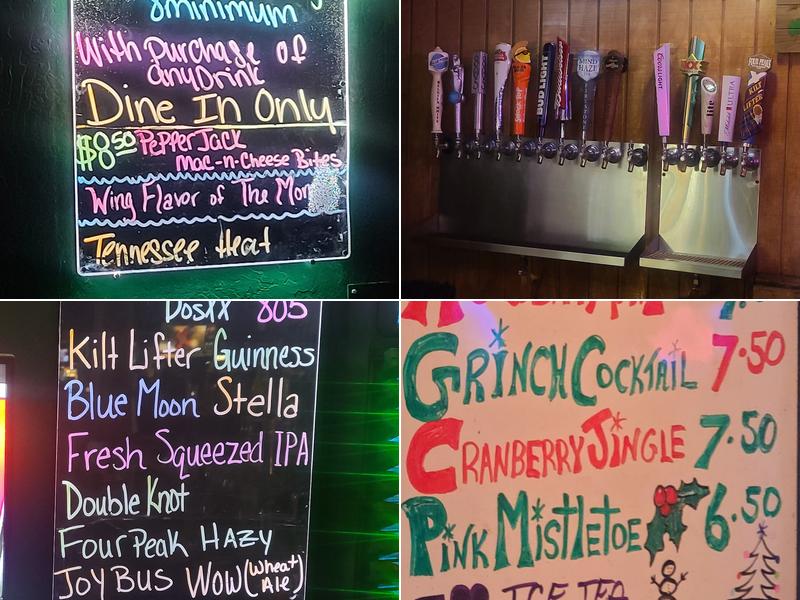 $minimum
With purchase of
any Drink
Dine In Only
$8.50 Pepper Jack
Mac-n-Cheese Bites
Wing Flavor of The Mon
Tennessee Heat
COORS LIGHT
BUD LIGHT
MIND HAZE
life
ULTRA
FOUR PEAKS
KILT LIFTER
DosXX 805
Kilt Lifter Guinness
Blue Moon Stella
Fresh Squeezed IPA
Double Knot
Four Peak HAZY
JOY BUS WOW (Wheat Ale)
GRINCH COCKTAIL 7.50
CRANBERRY JINGLE 7.50
PINK MISTLETOE 6.50
ICE TEA